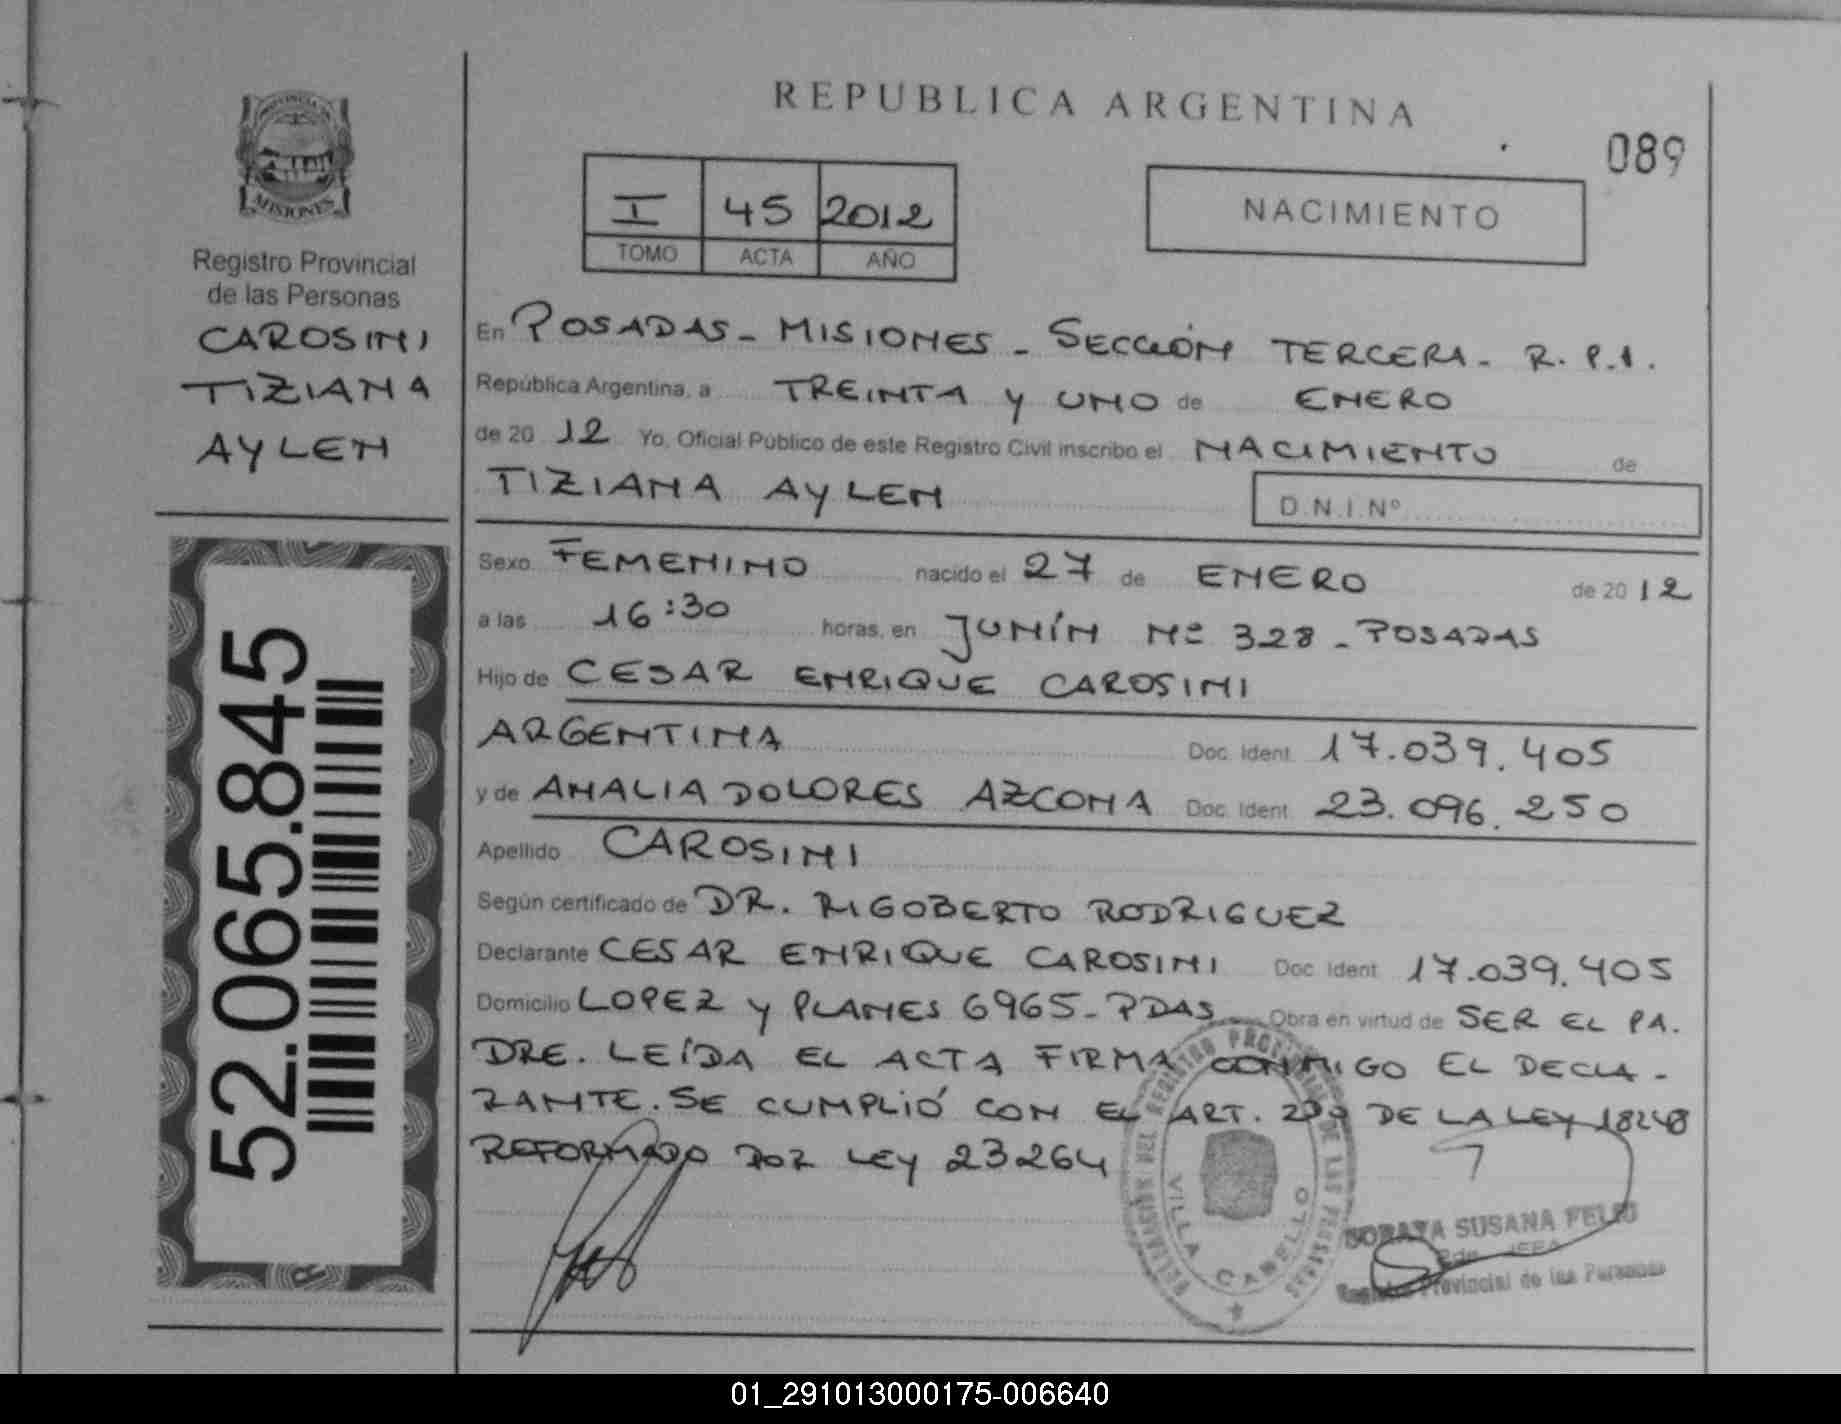 REPUBLICA ARGENTINA
089
PROVINCIA DE
MISIONES
Registro Provincial
de las Personas
CAROSINI
TIZIANA
AYLEN
52.065.845
I 45 2012
TOMO ACTA AÑO
NACIMIENTO
En POSADAS - MISIONES - SECCIÓN TERCERA - R. P. 1.
República Argentina, a TREINTA Y UNO de ENERO
de 20 12 Yo, Oficial Público de este Registro Civil inscribo el NACIMIENTO de
TIZIANA AYLEN D.N.I.Nº
Sexo FEMENINO nacido el 27 de ENERO de 20 12
a las 16:30 horas, en JUNÍN Nº 328 - POSADAS
Hijo de CESAR ENRIQUE CAROSINI
ARGENTINA Doc. Ident. 17.039.405
y de AMALIA DOLORES AZCONA Doc. Ident. 23.096.250
Apellido CAROSINI
Según certificado de DR. RIGOBERTO RODRIGUEZ
Declarante CESAR ENRIQUE CAROSINI Doc. Ident. 17.039.405
Domicilio LOPEZ Y PLANES 6965 - PDAS Obra en virtud de SER EL PA.
DRE. LEÍDA EL ACTA FIRMA CONMIGO EL DECLA-
RANTE. SE CUMPLIÓ CON EL ART. DE LA LEY 18248
REFORMADO POR LEY 23264
DELEGACIÓN DEL REGISTRO PROVINCIAL DE LAS PERSONAS
VILLA CABELLO
SORAYA SUSANA FELIU
JEFA
Registro Provincial de las Personas
01_291013000175-006640